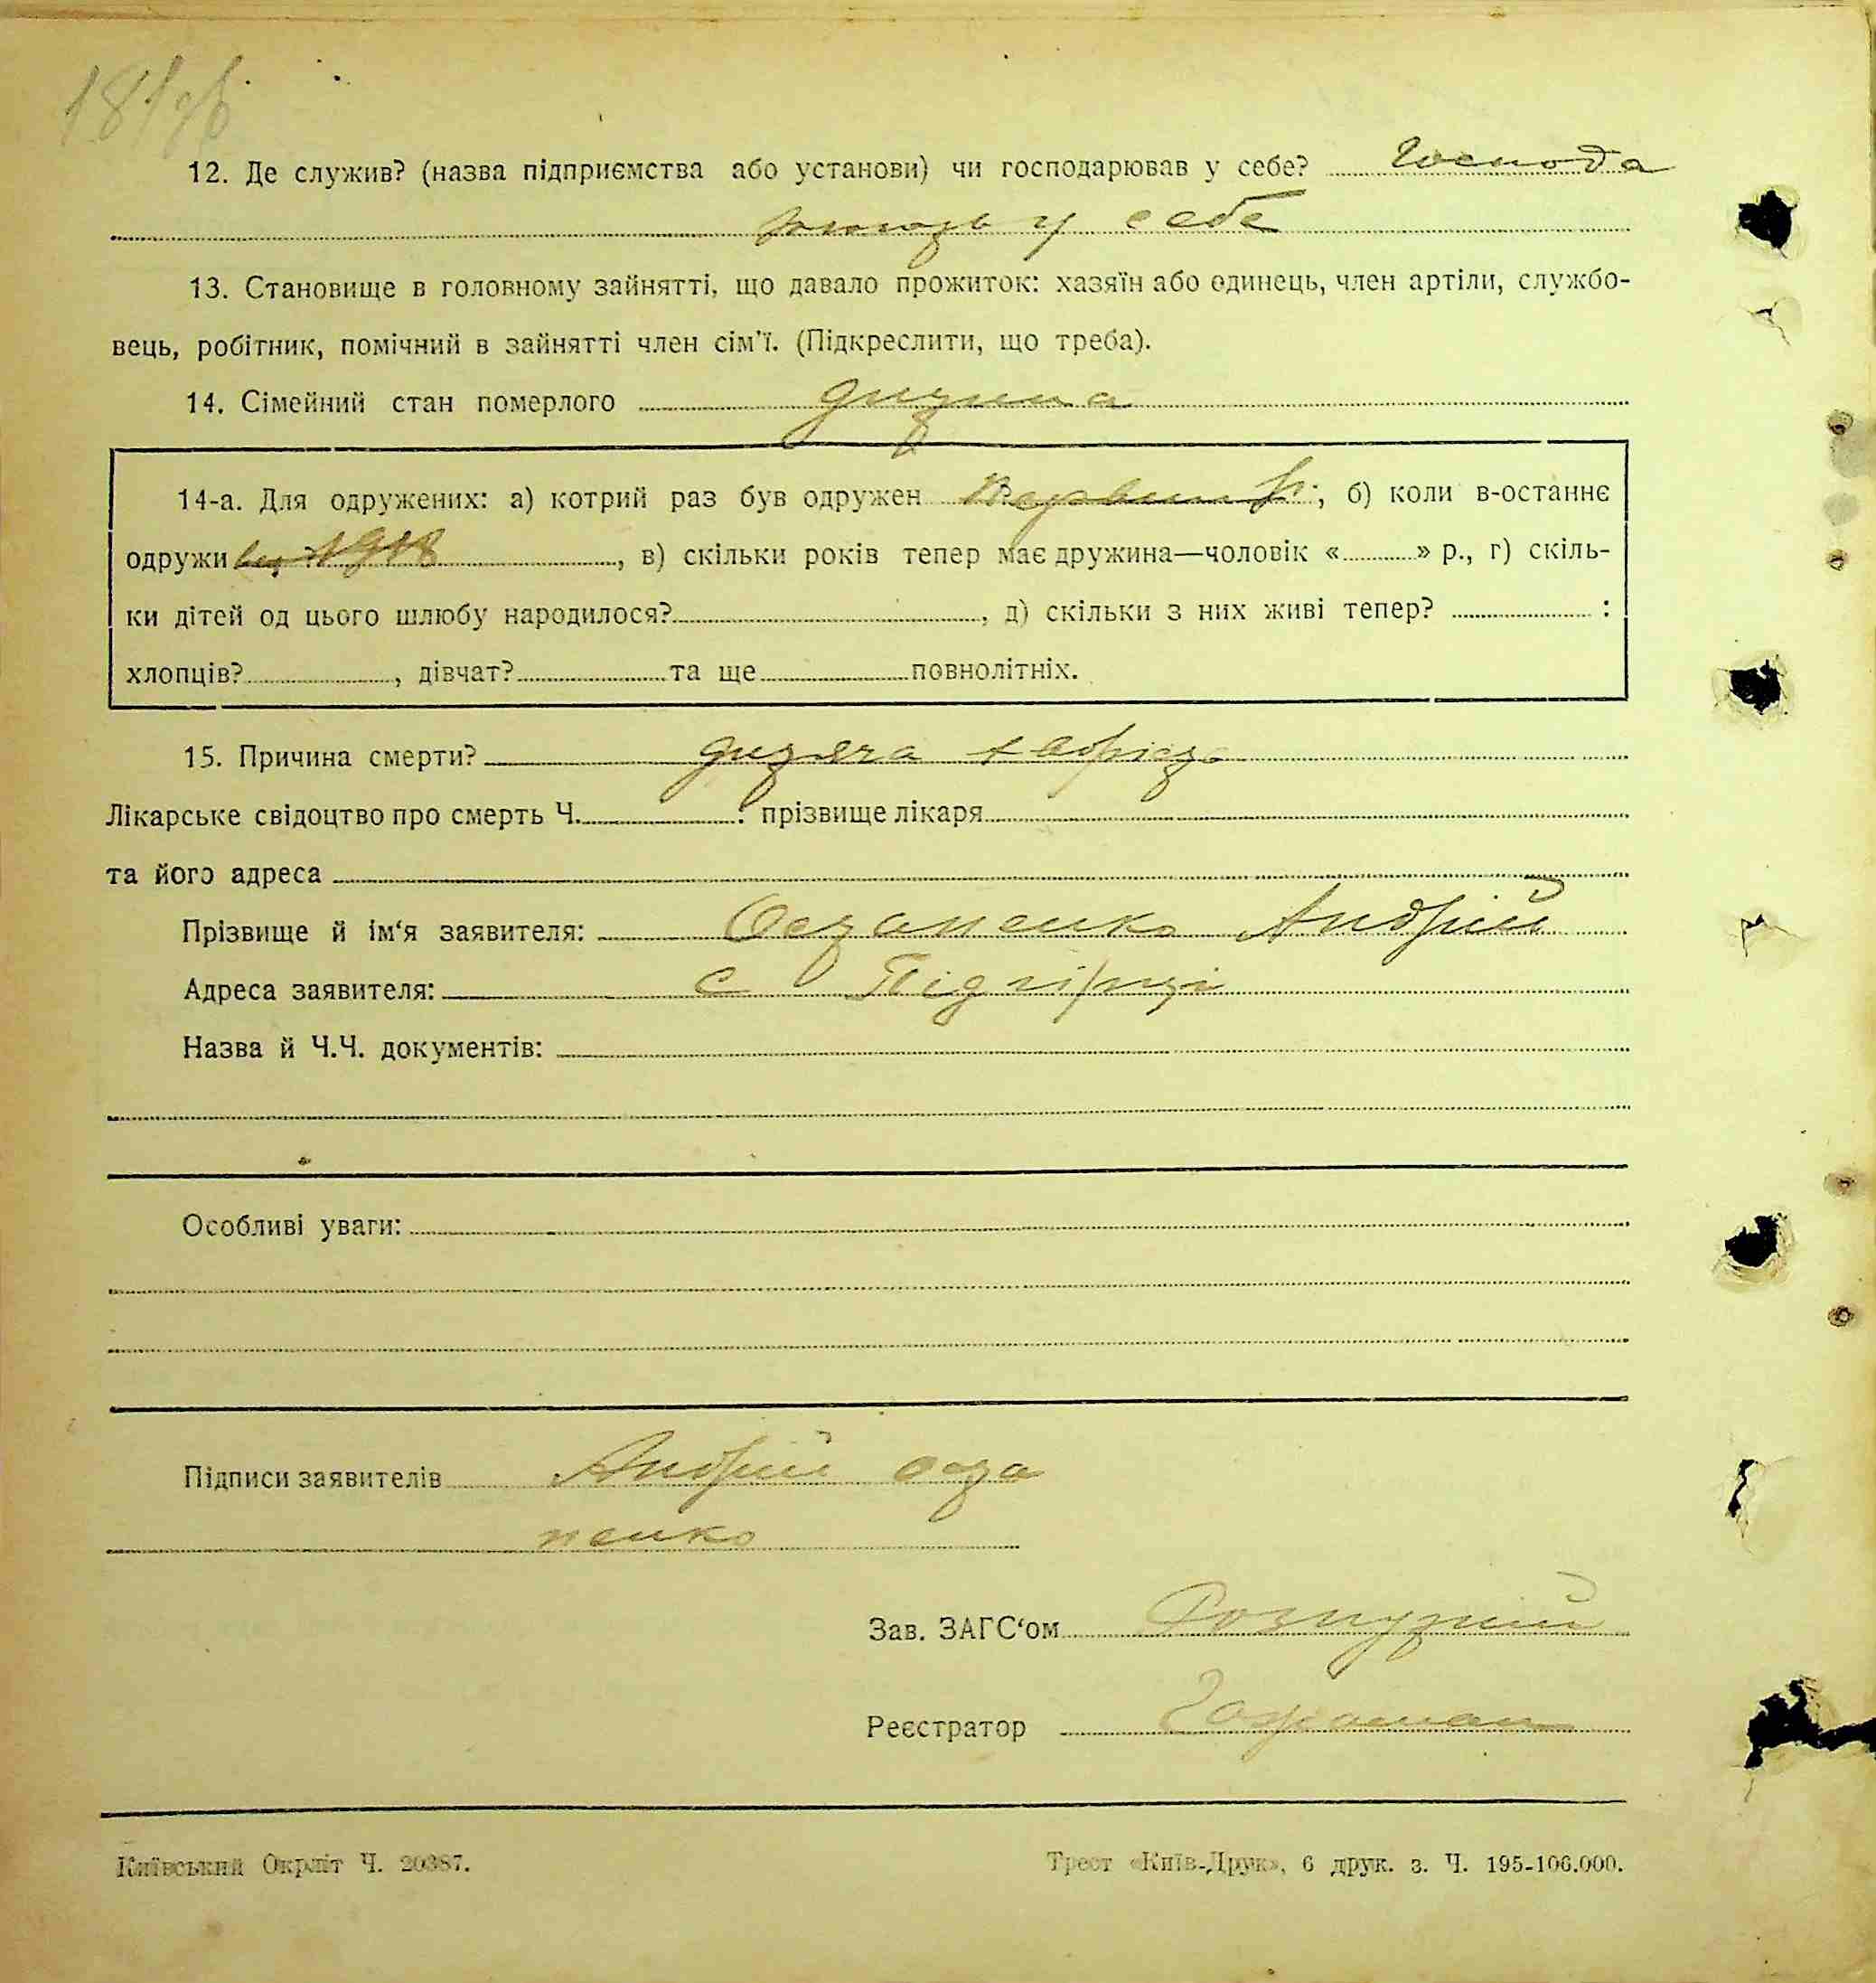 181зв
12. Де служив? (назва підприємства або установи) чи господарював у себе? Господа
рюють у себе
13. Становище в головному зайнятті, що давало прожиток: хазяїн або одинець, член артіли, службо-
вець, робітник, помічний в зайнятті член сім'ї. (Підкреслити, що треба).
14. Сімейний стан померлого дитина
14-а. Для одружених: а) котрий раз був одружен , б) коли в-останнє
одружи вся 1918, в) скільки років тепер має дружина—чоловік « » р., г) скіль-
ки дітей од цього шлюбу народилося? , д) скільки з них живі тепер? :
хлопців? , дівчат? та ще повнолітніх.
15. Причина смерти? дитяча
Лікарське свідоцтво про смерть Ч. : прізвище лікаря
та його адреса
Прізвище й ім'я заявителя: Остапенко Андрій
Адреса заявителя: с Підгірці
Назва й Ч.Ч. документів:
Особливі уваги:
Підписи заявителів Андрій Оста
пенко
Зав. ЗАГС'ом
Реєстратор
Київський Окрліт Ч. 20387. Трест «Київ-Друк», 6 друк. з. Ч. 195-106.000.